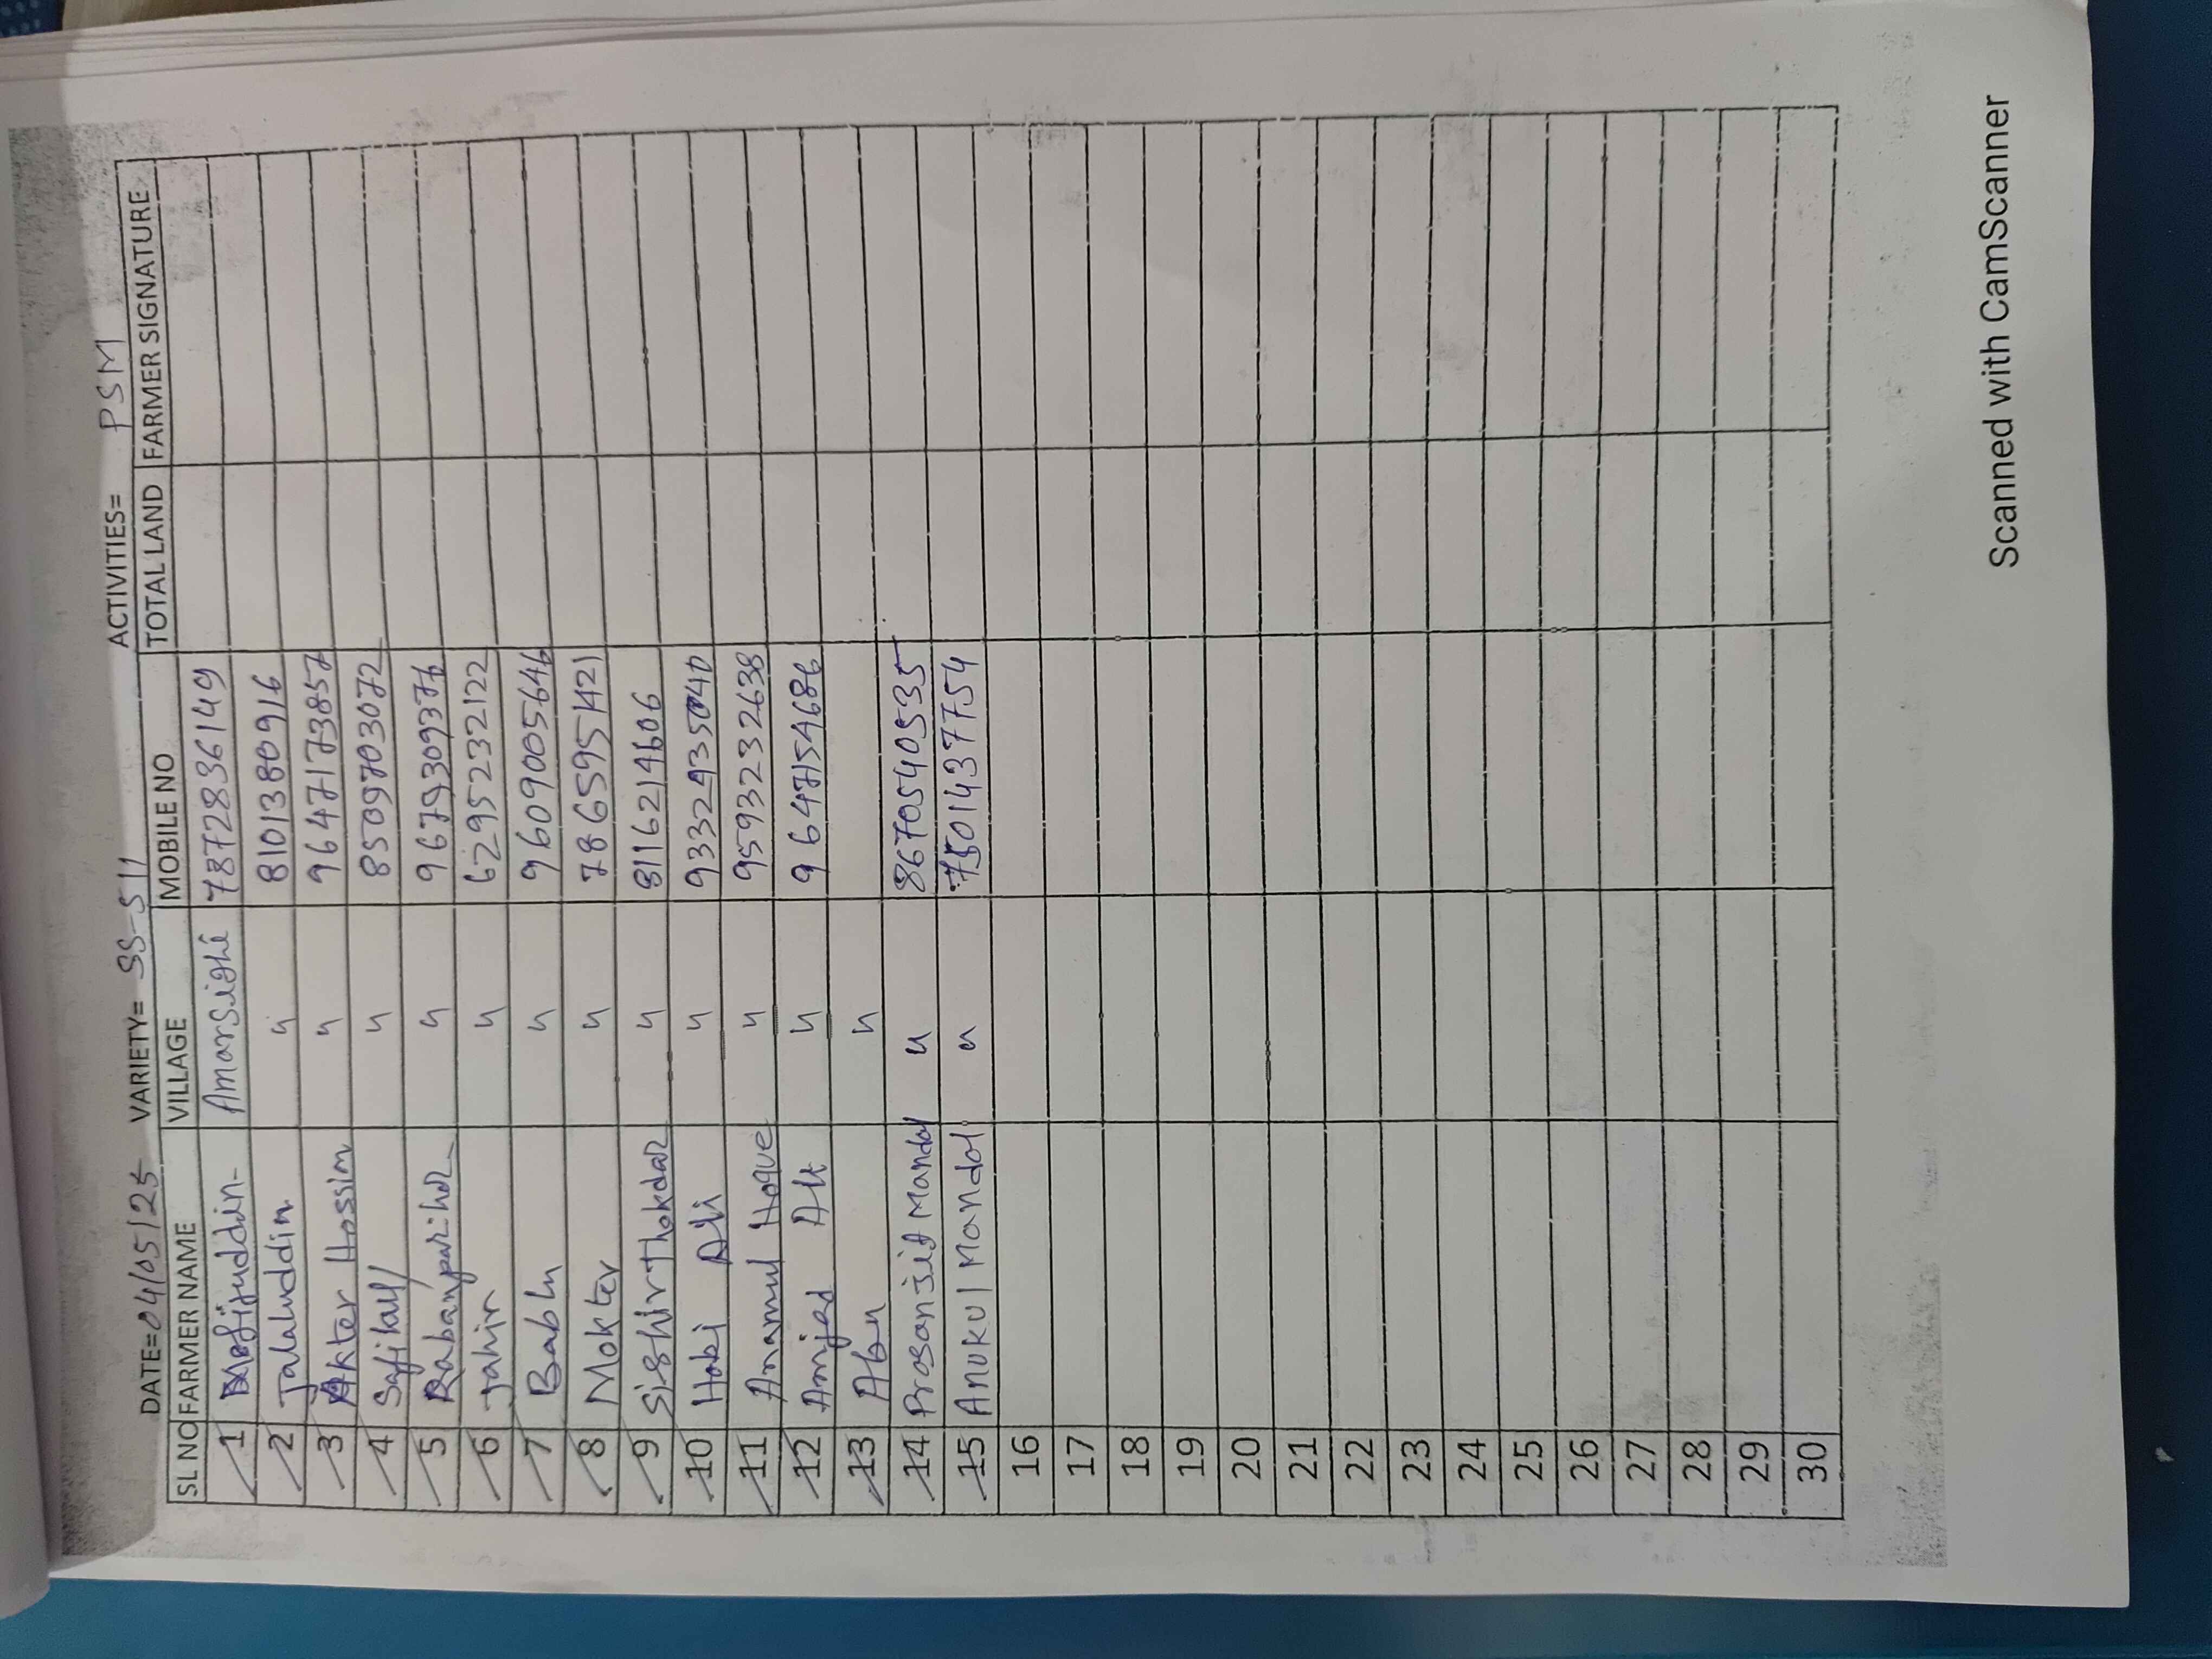 DATE=04/05/25 VARIETY= SS-511 ACTIVITIES= PSM
SL NO FARMER NAME VILLAGE MOBILE NO TOTAL LAND FARMER SIGNATURE
1 Mofijuddin Amarsighi 7872836149
2 Jalaluddin " 8101380916
3 Akter Hossim " 9647173857
4 Safikul " 8509703072
5 Rabanparihar " 9679309376
6 Jahir " 6295232122
7 Bablu " 9609005646
8 Mokter " 7865951421
9 Sishirthokdar " 8116214606
10 Habi Ali " 9332435040
11 Anamul Hoque " 9593232638
12 Amjad Ali " 9647154686
13 Abu "
14 Prosanjit Mandal " 8670540535
15 Anukul Mondal " 7501437754
16
17
18
19
20
21
22
23
24
25
26
27
28
29
30
Scanned with CamScanner